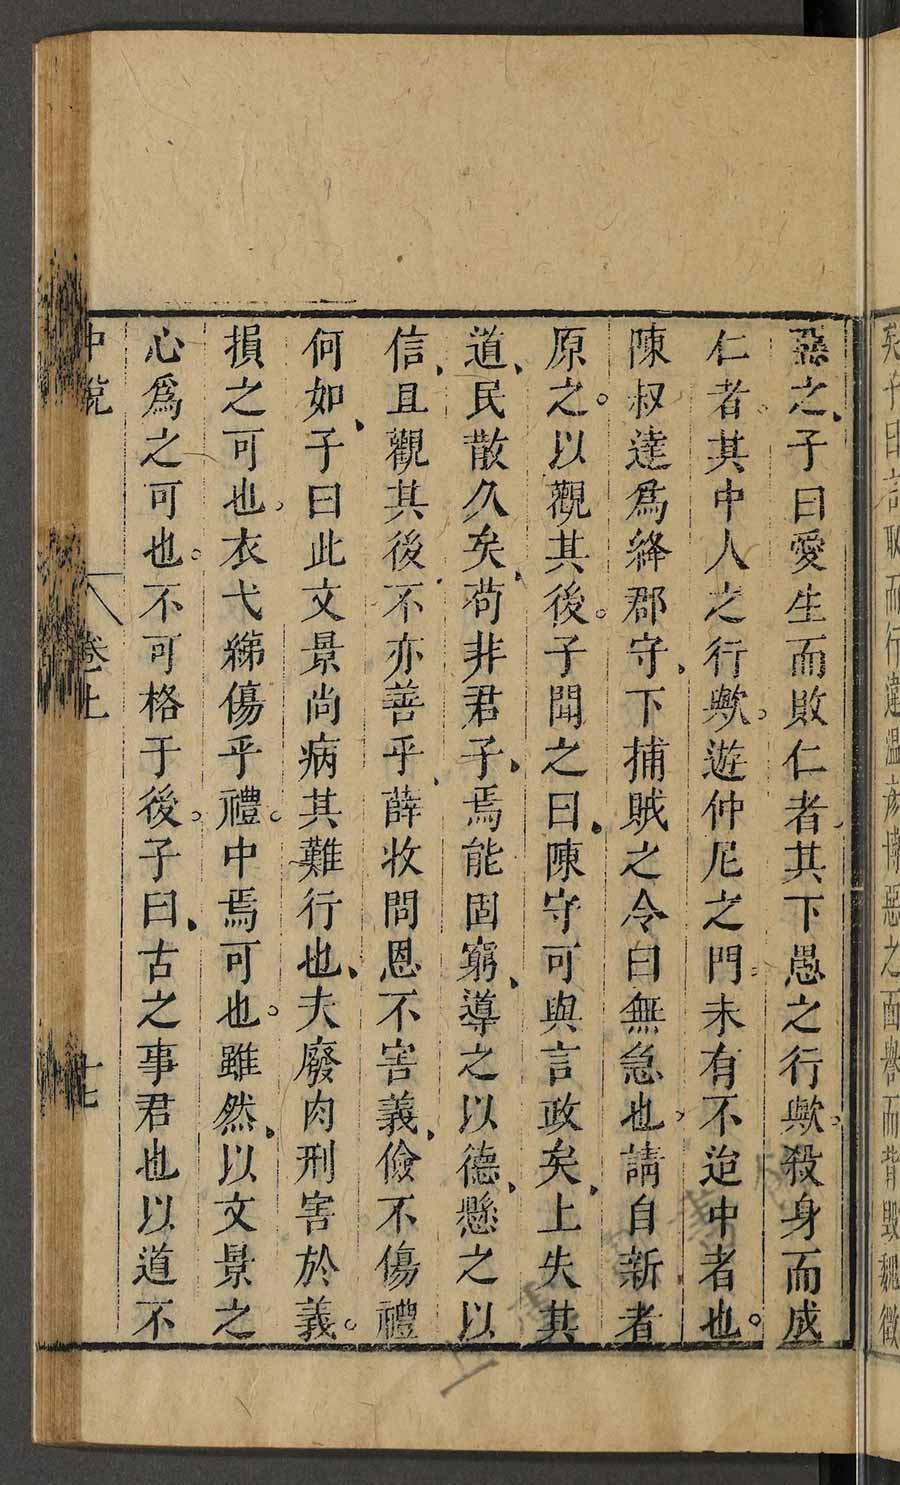 矣子曰言取而行違溫彥博惡之面譽而背毀魏徵
惡之子曰愛生而敗仁者其下愚之行歟殺身而成
仁者其中人之行歟遊仲尼之門未有不治中者也
陳叔達爲絳郡守下捕賊之令曰無急也請自新者
原之以觀其後子聞之曰陳守可與言政矣上失其
道民散久矣苟非君子焉能固窮導之以德懸之以
信且觀其後不亦善乎薛收問恩不害義儉不傷禮
何如子曰此文景尚病其難行也夫廢肉刑害於義
損之可也衣弋綈傷乎禮中焉可也雖然以文景之
心爲之可也不可格于後子曰古之事君也以道不
中說 卷上 十七